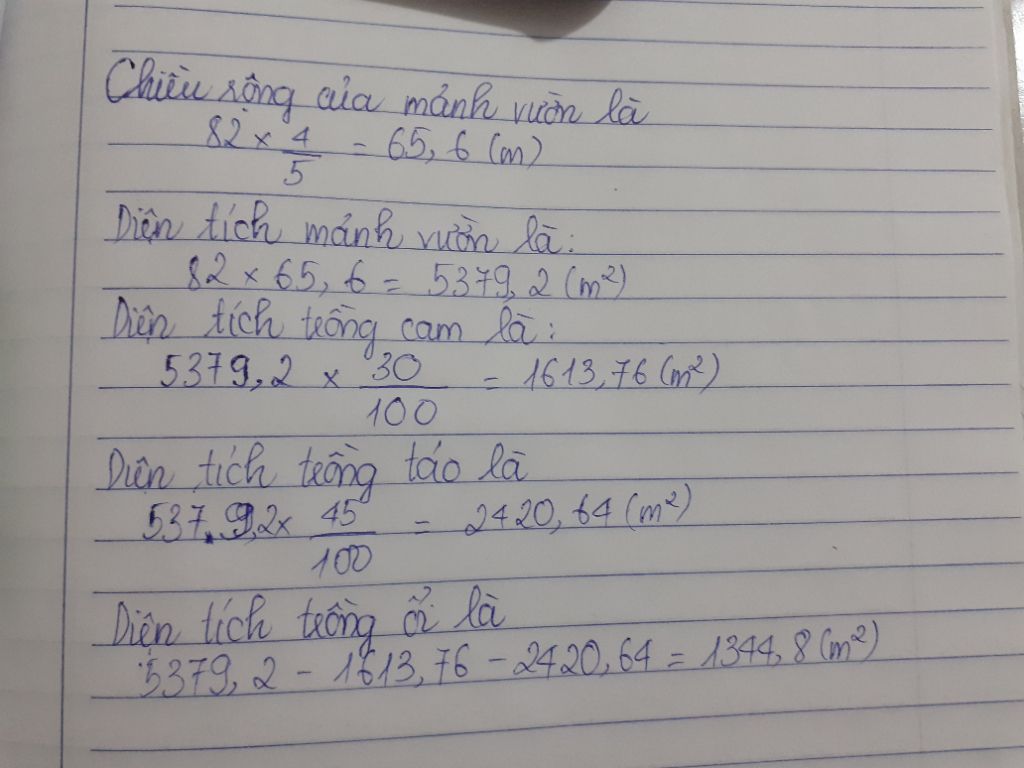 Chiều rộng của mảnh vườn là
82 × 4/5 = 65,6 (m)
Diện tích mảnh vườn là:
82 × 65,6 = 5379,2 (m²)
Diện tích trồng cam là:
5379,2 × 30/100 = 1613,76 (m²)
Diện tích trồng táo là
5379,2 × 45/100 = 2420,64 (m²)
Diện tích trồng ổi là
5379,2 - 1613,76 - 2420,64 = 1344,8 (m²)